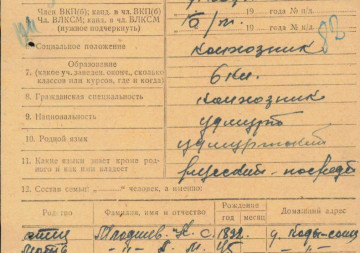 Член ВКП(б); канд. в чл. ВКП(б)
Чл. ВЛКСМ; канд. в чл. ВЛКСМ
(нужное подчеркнуть)
б/п. 19 — года №п/б.
19 — года №п/д.
Социальное положение колхозник
Образование
7. (какое уч. заведен. оконч., сколько классов или курсов, где и когда) 6 кл.
8. Гражданская специальность колхозник
9. Национальность удмурт
10. Родной язык удмуртский
11. Какие языки знает кроме родного и как ими владеет русский - посредст
12. Состав семьи: „ “ человек, а именно:
Род ство Фамилия, имя и отчество Рождение год месяц Домашний адрес
отец К. С. 189 д.
мать -"- -"-